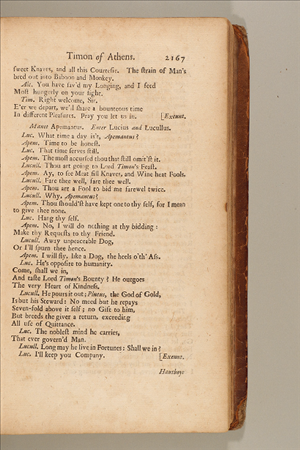 Timon of Athens. 2167
sweet Knaves, and all this Courtesie. The strain of Man's
bred out into Baboon and Monkey.
Alc. You have sav'd my Longing, and I feed
Most hungerly on your sight.
Tim. Right welcome, Sir.
E'er we depart, we'd share a bounteous time
In different Pleasures. Pray you let us in. [Exeunt.
Manet Apemantus. Enter Lucius and Lucullus.
Luc. What time a day is't, Apemantus?
Apem. Time to be honest.
Luc. That time serves still.
Apem. The most accursed thou that still omit'st it.
Lucull. Thou art going to Lord Timon's Feast.
Apem. Ay, to see Meat fill Knaves, and Wine heat Fools.
Lucull. Fare thee well, fare thee well.
Apem. Thou art a Fool to bid me farewel twice.
Lucull. Why, Apemantus?
Apem. Thou should'st have kept one to thy self, for I mean
to give thee none.
Luc. Hang thy self.
Apem. No, I will do nothing at thy bidding:
Make thy Requests to thy Friend.
Lucull. Away unpeaceable Dog,
Or I'll spurn thee hence.
Apem. I will fly, like a Dog, the heels o'th' Ass.
Luc. He's opposite to humanity.
Come, shall we in,
And taste Lord Timon's Bounty? He outgoes
The very Heart of Kindness.
Lucull. He pours it out; Plutus, the God of Gold,
Is but his Steward: No meed but he repays
Seven-fold above it self; no Gift to him,
But breeds the giver a return, exceeding
All use of Quittance.
Luc. The noblest mind he carries,
That ever govern'd Man.
Lucull. Long may he live in Fortunes: Shall we in?
Luc. I'll keep you Company. [Exeunt.
Hautboys